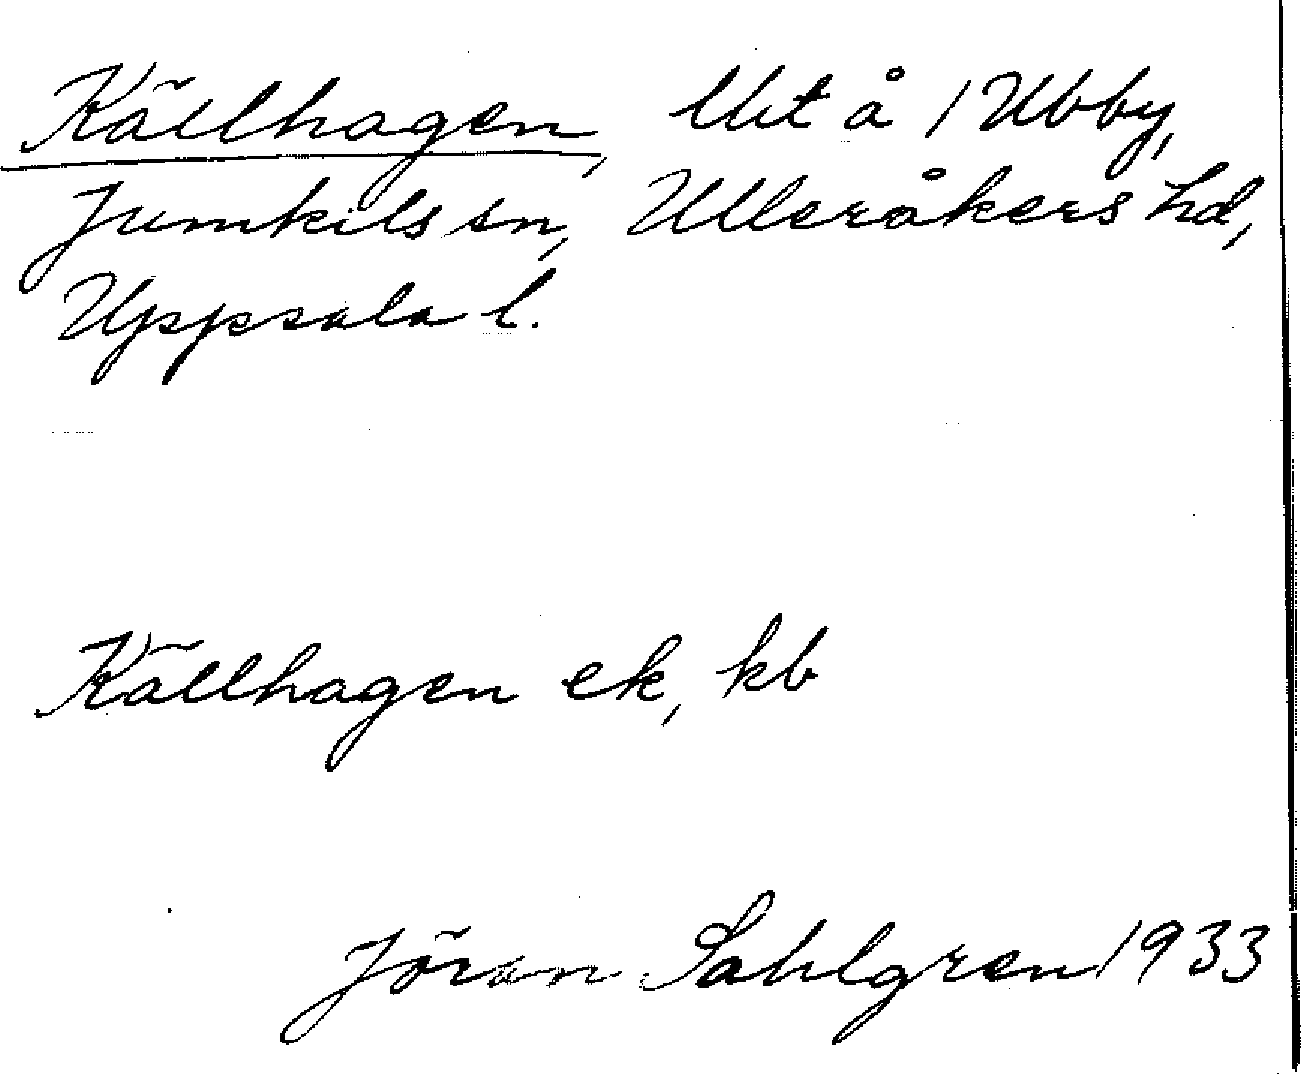 Källhagen, Uht å 1 Ubby,
Jumkils sn, Ulleråkers hd,
Uppsala l.
Källhagen ek, kb
Jöran Sahlgren 1933